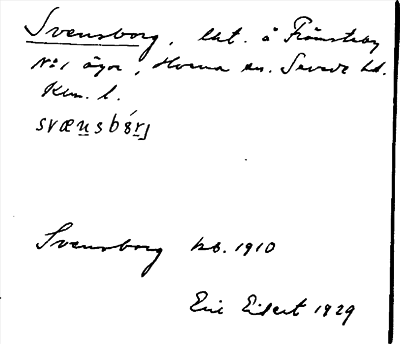 Svensborg, lht. å Främsteby
No 1 ägor, Horna sn. Sevede hd.
Klm. l.
svænsbórj
Svensborg kb. 1910
Eric Eidert 1929